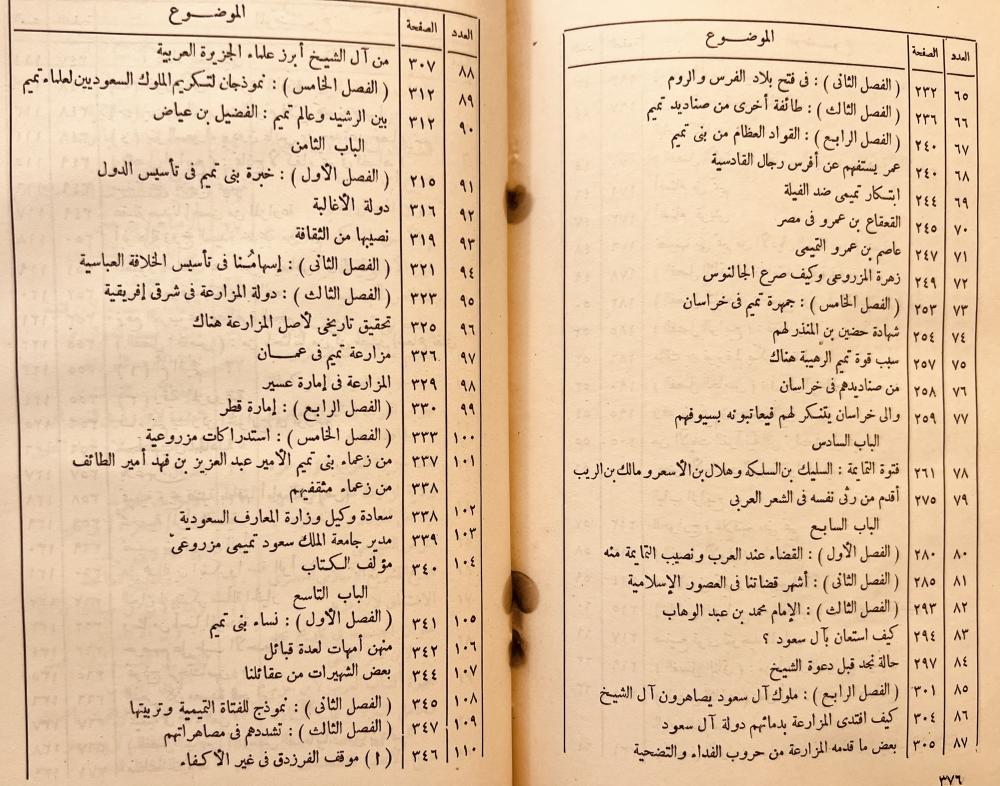 العدد الصفحة الموضوع
٦٥ ٢٣٢ ( الفصل الثانى ) : فى فتح بلاد الفرس والروم
٦٦ ٢٣٦ ( الفصل الثالث ) : طائفة أخرى من صناديد تميم
٦٧ ٢٤٠ ( الفصل الرابع ) : القواد العظام من بنى تميم
٦٨ ٢٤٠ عمر يستفهم عن أفرس رجال القادسية
٦٩ ٢٤٤ ابتكار تميمى ضد الفيلة
٧٠ ٢٤٥ القعقاع بن عمرو فى مصر
٧١ ٢٤٧ عاصم بن عمرو التميمى
٧٢ ٢٤٩ زهرة المزروعى وكيف صرع الجالنوس
٧٣ ٢٥٣ ( الفصل الخامس ) : جمهرة تميم فى خراسان
٧٤ ٢٥٤ شهادة حضين بن المنذر لهم
٧٥ ٢٥٧ سبب قوة تميم الرهيبة هناك
٧٦ ٢٥٨ من صناديدهم فى خراسان
٧٧ ٢٥٩ والى خراسان يتنكر لهم فيعاتبونه بسيوفهم
الباب السادس
٧٨ ٢٦١ فتوة التمايمة : السليك بن السلكة وهلال بن الأسعر ومالك بن الريب
٧٩ ٢٧٥ أقدم من رثى نفسه فى الشعر العربى
الباب السابع
٨٠ ٢٨٠ ( الفصل الأول ) : القضاء عند العرب ونصيب التمايمة منه
٨١ ٢٨٥ ( الفصل الثانى ) : أشهر قضاتنا فى العصور الإسلامية
٨٢ ٢٩٣ ( الفصل الثالث ) : الإمام محمد بن عبد الوهاب
٨٣ ٢٩٤ كيف استعان بآل سعود ؟
٨٤ ٢٩٧ حالة نجد قبل دعوة الشيخ
٨٥ ٣٠١ ( الفصل الرابع ) : ملوك آل سعود يصاهرون آل الشيخ
٨٦ ٣٠٤ كيف افتدى المزارعة بدمائهم دولة آل سعود
٨٧ ٣٠٥ بعض ما قدمه المزارعة من حروب الفداء والتضحية
٣٧٦
العدد الصفحة الموضوع
٨٨ ٣٠٧ من آل الشيخ أبرز علماء الجزيرة العربية
٨٩ ٣١٢ ( الفصل الخامس ) : نموذجان لتكريم الملوك السعوديين لعلماء تميم
٩٠ ٣١٢ بين الرشيد وعالم تميم : الفضيل بن عياض
الباب الثامن
٩١ ٢١٥ ( الفصل الأول ) : خبرة بنى تميم فى تأسيس الدول
٩٢ ٣١٦ دولة الأغالبة
٩٣ ٣١٩ نصيبها من الثقافة
٩٤ ٣٢١ ( الفصل الثانى ) : إسهامُنا فى تأسيس الخلافة العباسية
٩٥ ٣٢٣ ( الفصل الثالث ) : دولة المزارعة فى شرقى إفريقية
٩٦ ٣٢٥ تحقيق تاريخى لأصل المزارعة هناك
٩٧ ٣٢٦ مزارعة تميم فى عمــان
٩٨ ٣٢٩ المزارعة فى إمارة عسير
٩٩ ٣٣٠ ( الفصل الرابع ) : إمارة قطر
١٠٠ ٣٣٣ ( الفصل الخامس ) : استدراكات مزروعية
١٠١ ٣٣٧ من زعماء بنى تميم الأمير عبد العزيز بن فهد أمير الطائف
٣٣٨ من زعماء مثقفيهم
١٠٢ ٣٣٨ سعادة وكيل وزارة المعارف السعودية
١٠٣ ٣٣٩ مدير جامعة الملك سعود تميمى مزروعىّ
١٠٤ ٣٤٠ مؤلف الكتاب
الباب التاسع
١٠٥ ٣٤١ ( الفصل الأول ) : نساء بنى تميم
١٠٦ ٣٤٢ منهن أمهات لعدة قبائل
١٠٧ ٣٤٤ بعض الشهيرات من عقائلنا
١٠٨ ٣٤٥ ( الفصل الثانى ) : نموذج للفتاة التميمية وتربيتها
١٠٩ ٣٤٧ ( الفصل الثالث ) : تشددهم فى مصاهراتهم
١١٠ ٣٤٦ ( ا ) موقف الفرزدق فى غير الأكفاء